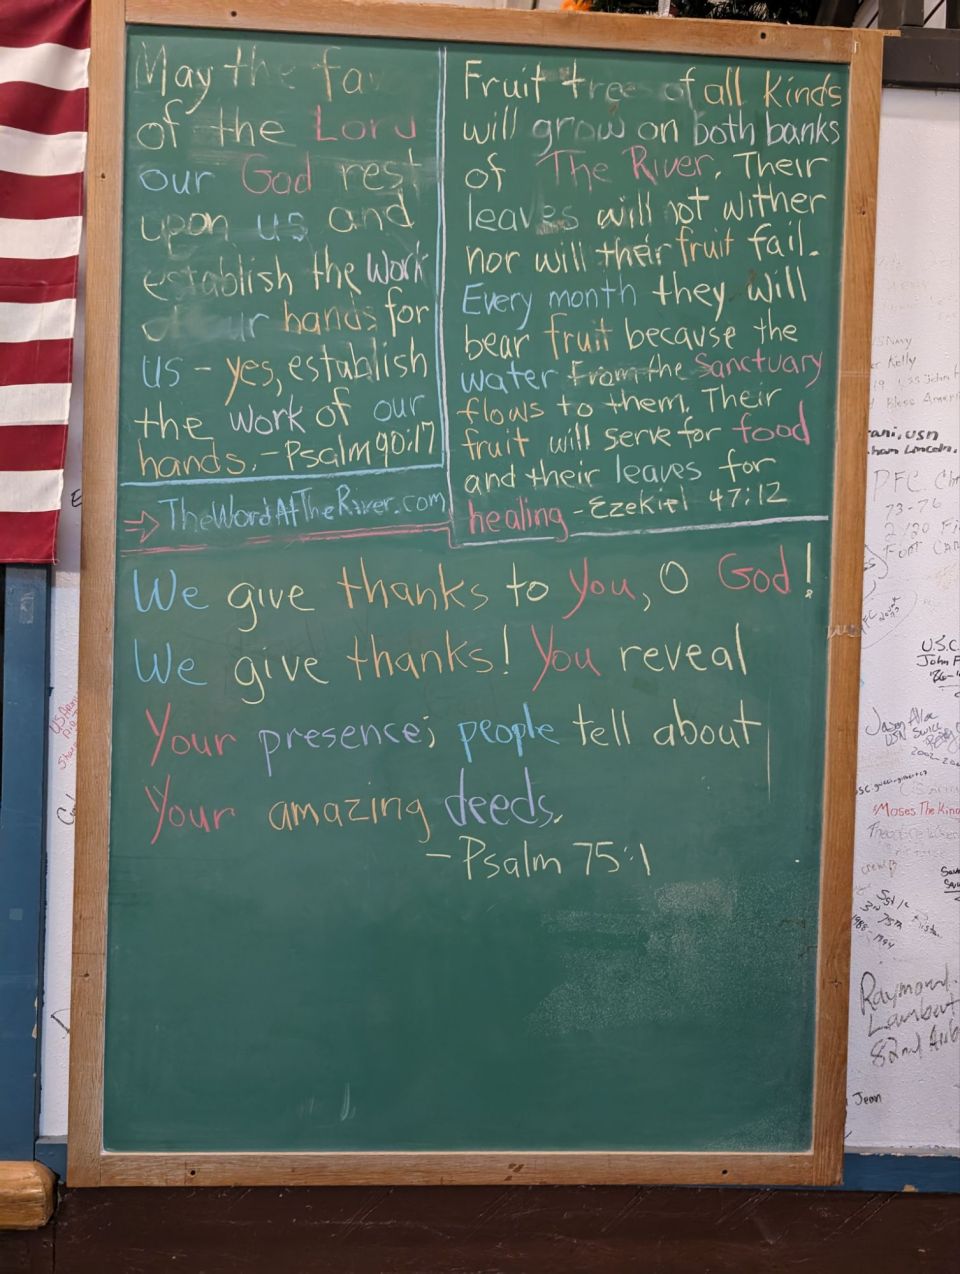 May the fa
of the Lord
our God rest
upon us and
establish the work
our hands for
us - yes, establish
the work of our
hands. - Psalm 90:17
⇒ TheWordAtTheRiver.com
Fruit trees of all kinds
will grow on both banks
of The River. Their
leaves will not wither
nor will their fruit fail.
Every month they will
bear fruit because the
water from the Sanctuary
flows to them. Their
fruit will serve for food
and their leaves for
healing - Ezekiel 47:12
We give thanks to You, O God!
We give thanks! You reveal
Your presence; people tell about
Your amazing deeds.
- Psalm 75:1
Kelly
ani, USN
ham Lincoln.
PFC Chr
73-76
U.S.C.
John F
Jason
2002-200
Moses The King
1988-1994
Raymond
Lambert
82nd Airb
Jean